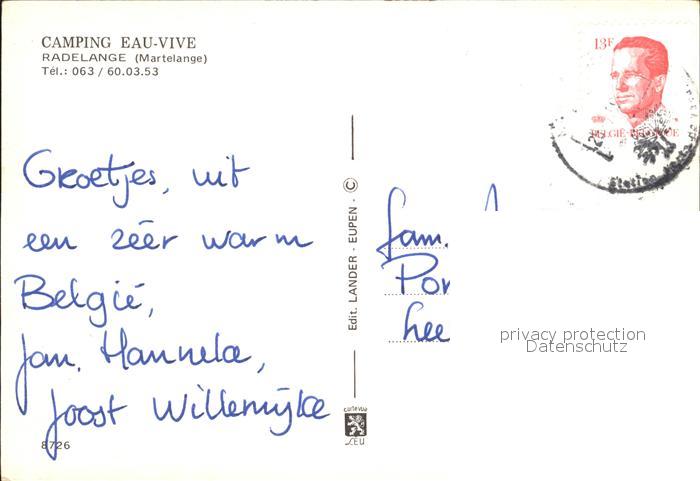 CAMPING EAU-VIVE
RADELANGE (Martelange)
Tél.: 063 / 60.03.53
13F
BELGIË-BELGIQUE
Groetjes, uit
een zéér warm
België,
Jan, Hanneke,
Joost Willemijke
8726
Edit. LANDER - EUPEN - ©
fam.
Por
hee
privacy protection
Datenschutz